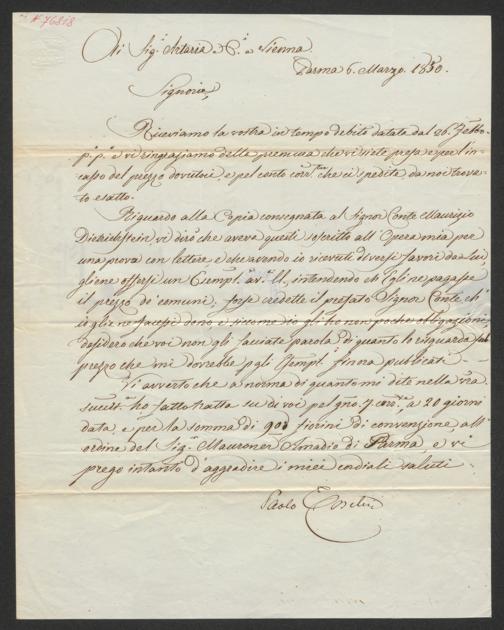 N 76818
Alli Sig.i Artaria e C.a Vienna.
Parma 6. Marzo. 1830.
Signori,
Riceviamo la vostra in tempo debito datata dal 26. Febbo.
p.o p.o e vi ringraziamo della premura che vi siete presa e per l'in-
casso del prezzo dovutoci, e pel conto corr.te che ci spedite, da noi trova-
to esatto.
Riguardo alla Copia consegnata al Signor Conte Maurizio
Dietrichstein, vi dirò che aveva questi soscritto all'Opera mia per
una prova con lettere e che avendo io ricevuti diversi favori da Lui,
gliene offersi un Esempl. av. ll., intendendo ch'Egli ne pagasse
il prezzo de' comuni; forse credette il prefato Signor Conte ch'
io gliene facessi dono, e siccome io gli ho non poche obbligazioni,
desidero che voi non gli facciate parola di quanto lo riguarda sul
prezzo che mi dovrebbe pgli Esempl. finora publicati.
Vi avverto che a norma di quanto mi dite nella vra.
suucit.a ho fatto tratta su di voi pel gno. 7 corr.te, a 20 giorni
data, e per la somma di 900 fiorini di convenzione, all'
ordine del Sig.r Mauroner Amadio di Parma e vi
prego intanto d'aggradire i miei cordiali saluti
Paolo